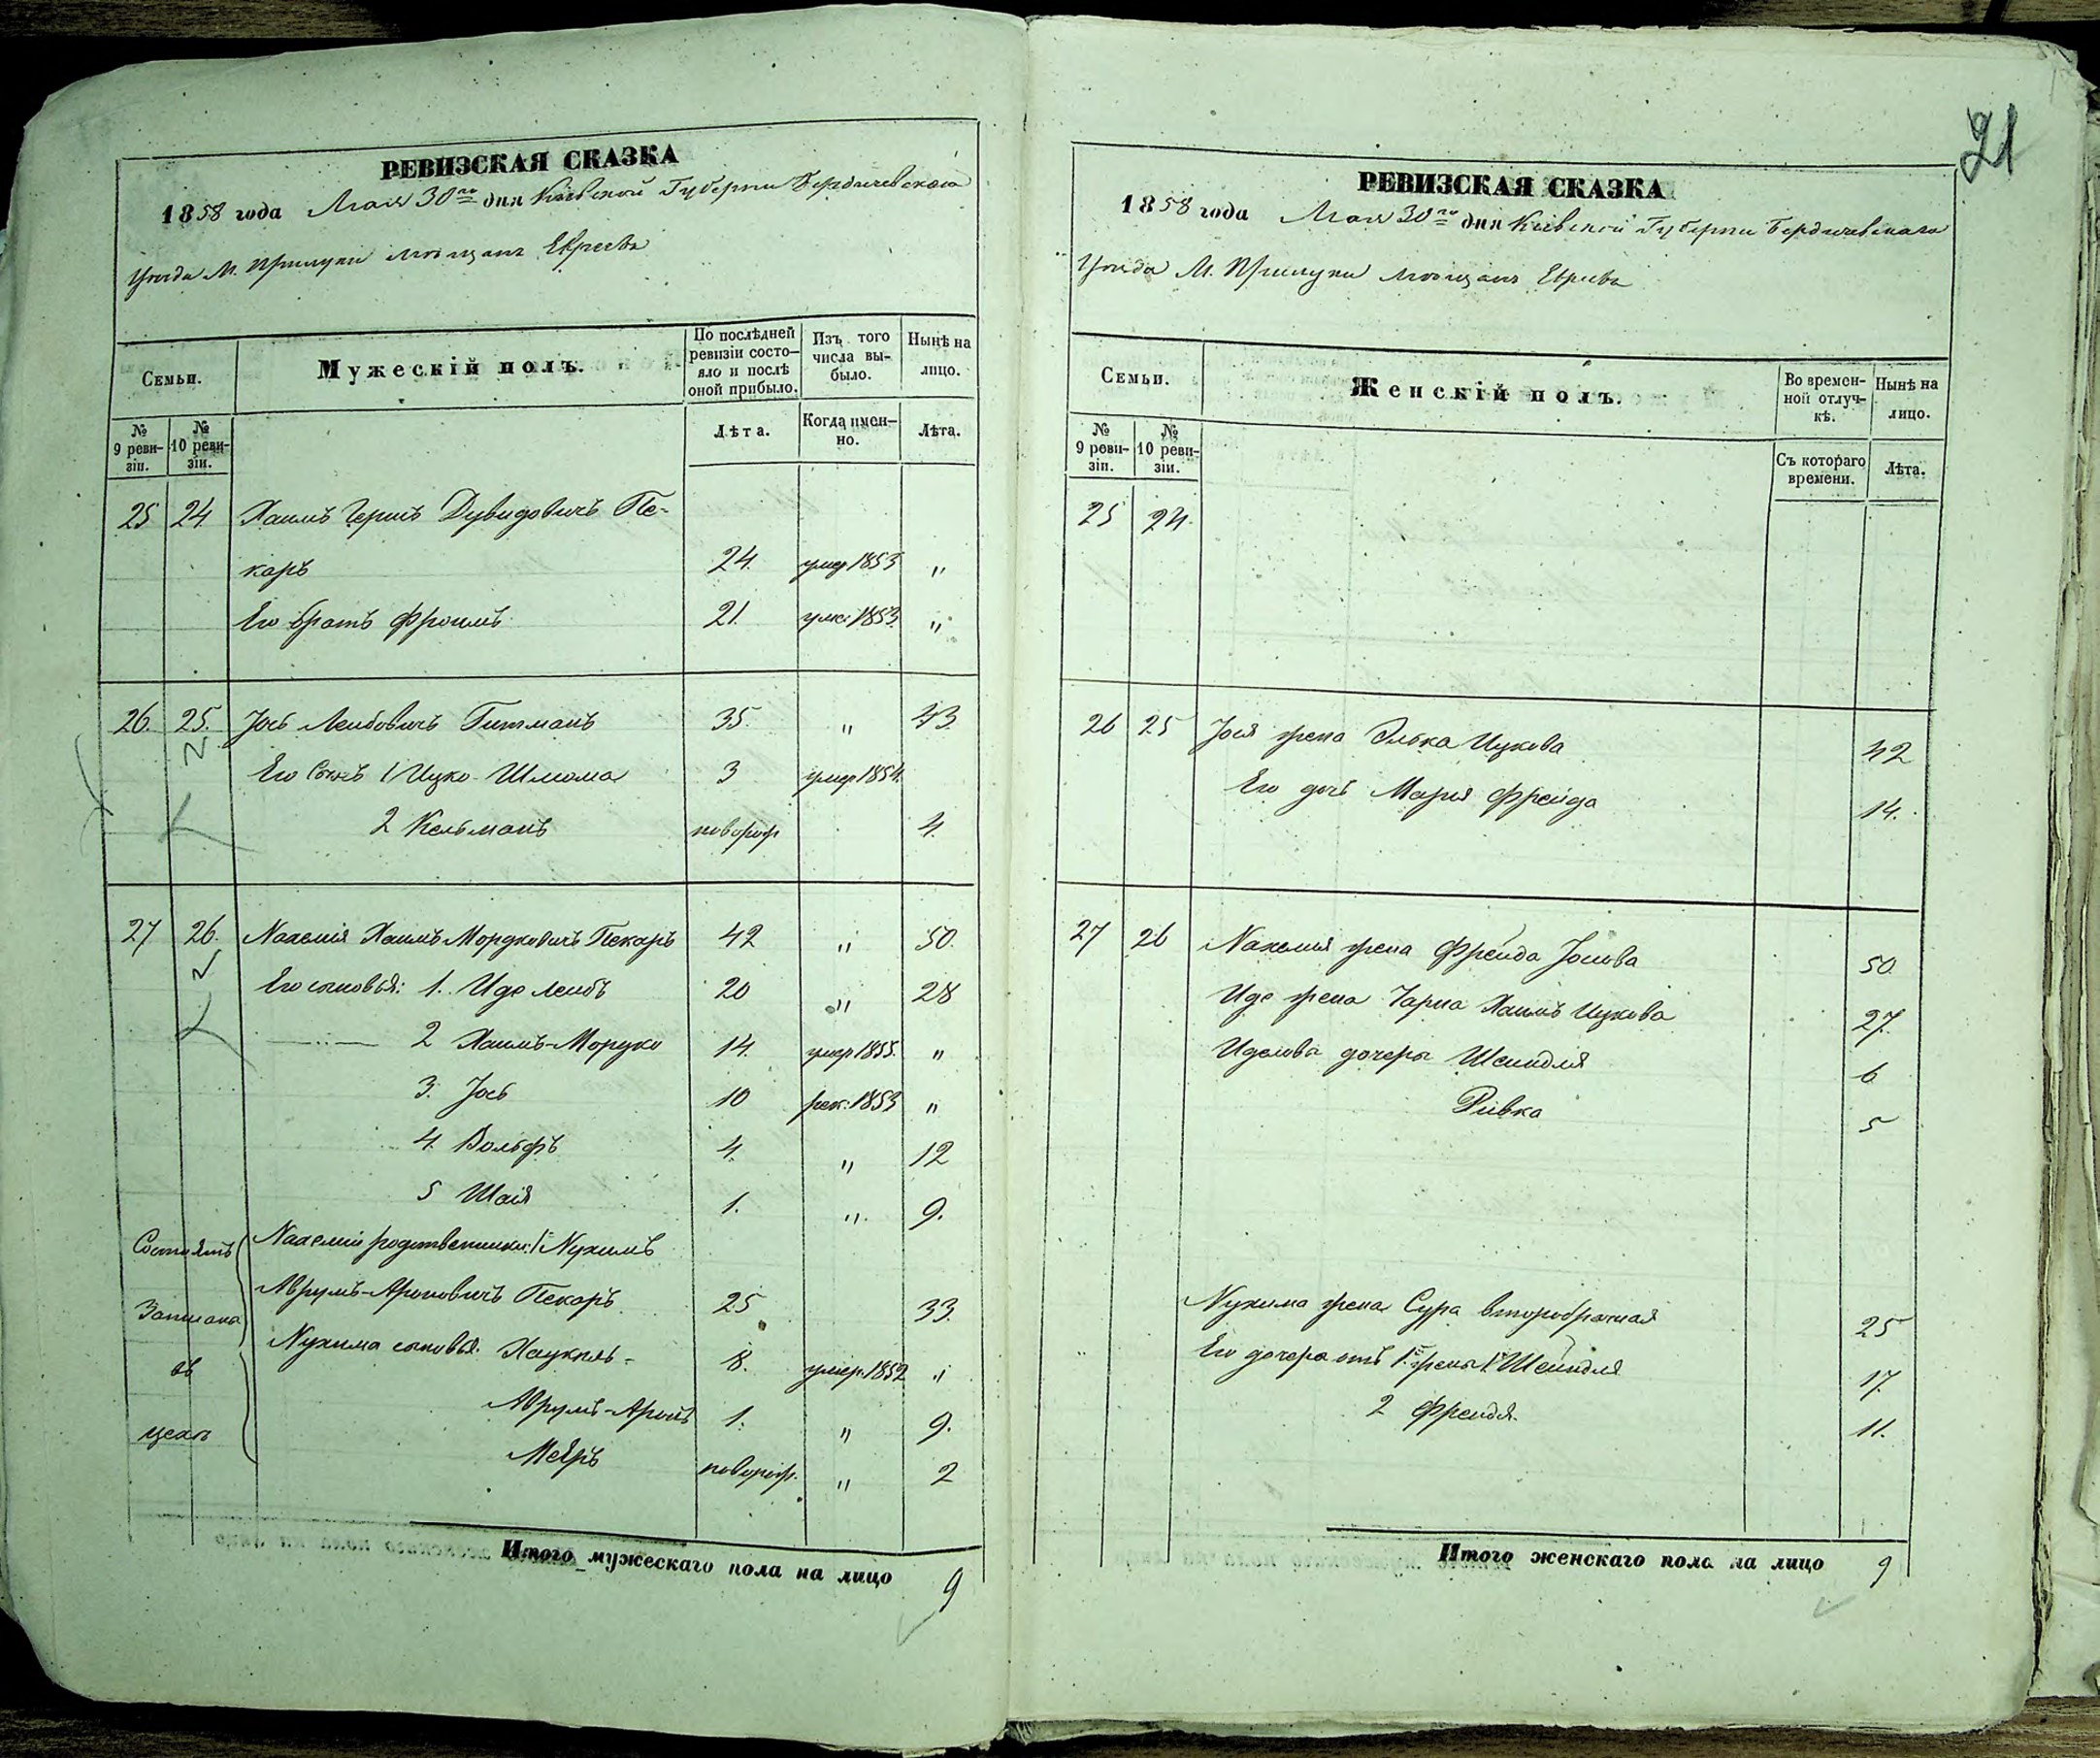 21
РЕВИЗСКАЯ СКАЗКА
1858 года Мая 30го дня Кіевской Губерніи Бердичевскаго
Уѣзда М. Прилуки мѣщанъ Евреевъ
Семьи.
Мужескій полъ.
По послѣдней ревизіи состояло и послѣ оной прибыло.
Изъ того числа выбыло.
Нынѣ на лицо.
№ 9 ревизіи.
№ 10 ревизіи.
Лѣта.
Когда именно.
Лѣта.
25 24 Хаимъ Гершъ Дувидовичъ Пе-
каръ 24. умер 1853 "
Его братъ Фроимъ 21. умер 1853. "
26. 25. Іось Лейбовичъ Гитманъ 35. " 43.
Его Сынъ 1 Ицко-Шлиома 3 умер 1854.
2 Кельманъ новорож 4.
27 26. Нахемія Хаимъ Мордковичъ Пекаръ 42 " 50.
Его сыновья: 1. Иде Лейбъ 20 " 28
—"— 2 Хаимъ-Мордко 14. умер 1855. "
3. Іось 10 рек: 1853 "
4. Вольфъ 4. " 12
5 Шаія 1. " 9.
Состоятъ Нахеміи родственники: 1й Нухимъ
Записана Аврумъ-Ароновичъ Пекаръ 25 33.
въ Нухима сыновья. Хацкель- 8. умер. 1852 "
цехъ Аврумъ-Аронъ 1. " 9.
Меѣръ новорож. " 2
Итого мужескаго пола на лицо 9
РЕВИЗСКАЯ СКАЗКА
1858 года Мая 30го дня Кіевской Губерніи Бердичевскаго
Уѣзда М. Прилуки мѣщанъ Евреевъ
Семьи.
Женскій полъ.
Во временной отлучкѣ.
Нынѣ на лицо.
№ 9 ревизіи.
№ 10 ревизіи.
Съ котораго времени.
Лѣта.
25 24.
26 25 Іося жена Элька Ицкова 42
Его дочь Марія Фрейда 14.
27 26 Нахемія жена Фрейда Іосіова 50.
Иде жена Чарна Хаимъ Ицкова 27.
Иделова дочеры Шейндля 6
Ривка 5
Нухима жена Сура второбрачная 25
Его дочера отъ 1й жены 1 Шейндля 17.
2 Фрейдя. 11.
Итого женскаго пола на лицо 9